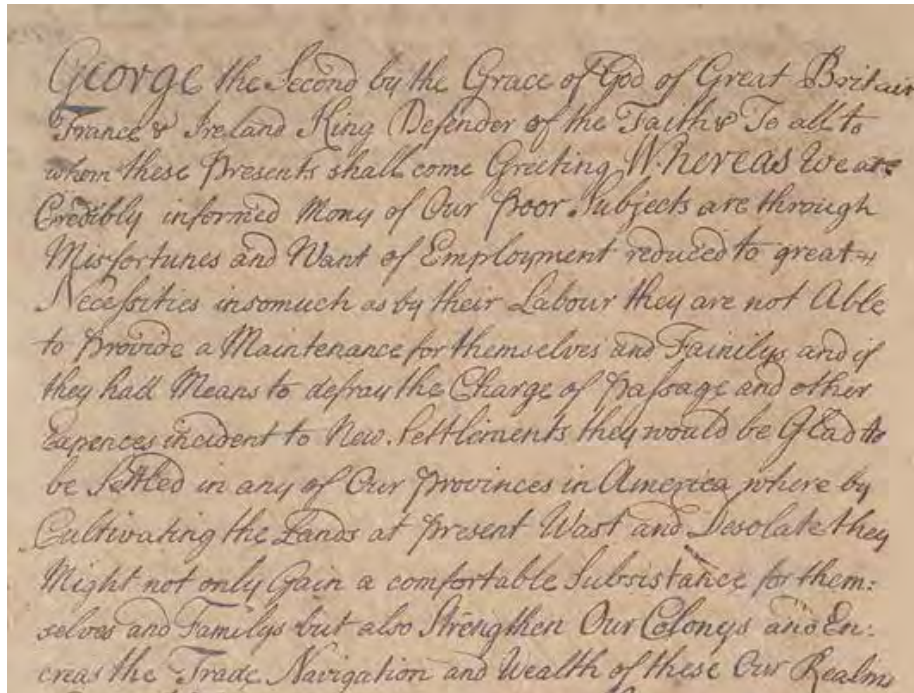 George the Second by the Grace of God of Great Britain
France & Ireland King Defender of the Faith & To all to
whom these Presents shall come Greeting Whereas We are
Credibly informed Many of Our Poor Subjects are through
Misfortunes and Want of Employment reduced to great
Necessities insomuch as by their Labour they are not Able
to Provide a Maintenance for themselves and Familys and if
they had Means to defray the Charge of Passage and other
Expences incident to New Settlements they would be Glad to
be Settled in any of Our Provinces in America where by
Cultivating the Lands at Present Wast and Desolate they
Might not only Gain a comfortable Subsistance for them:
selves and Familys but also Strengthen Our Colonys and En:
creas the Trade Navigation and Wealth of these Our Realms